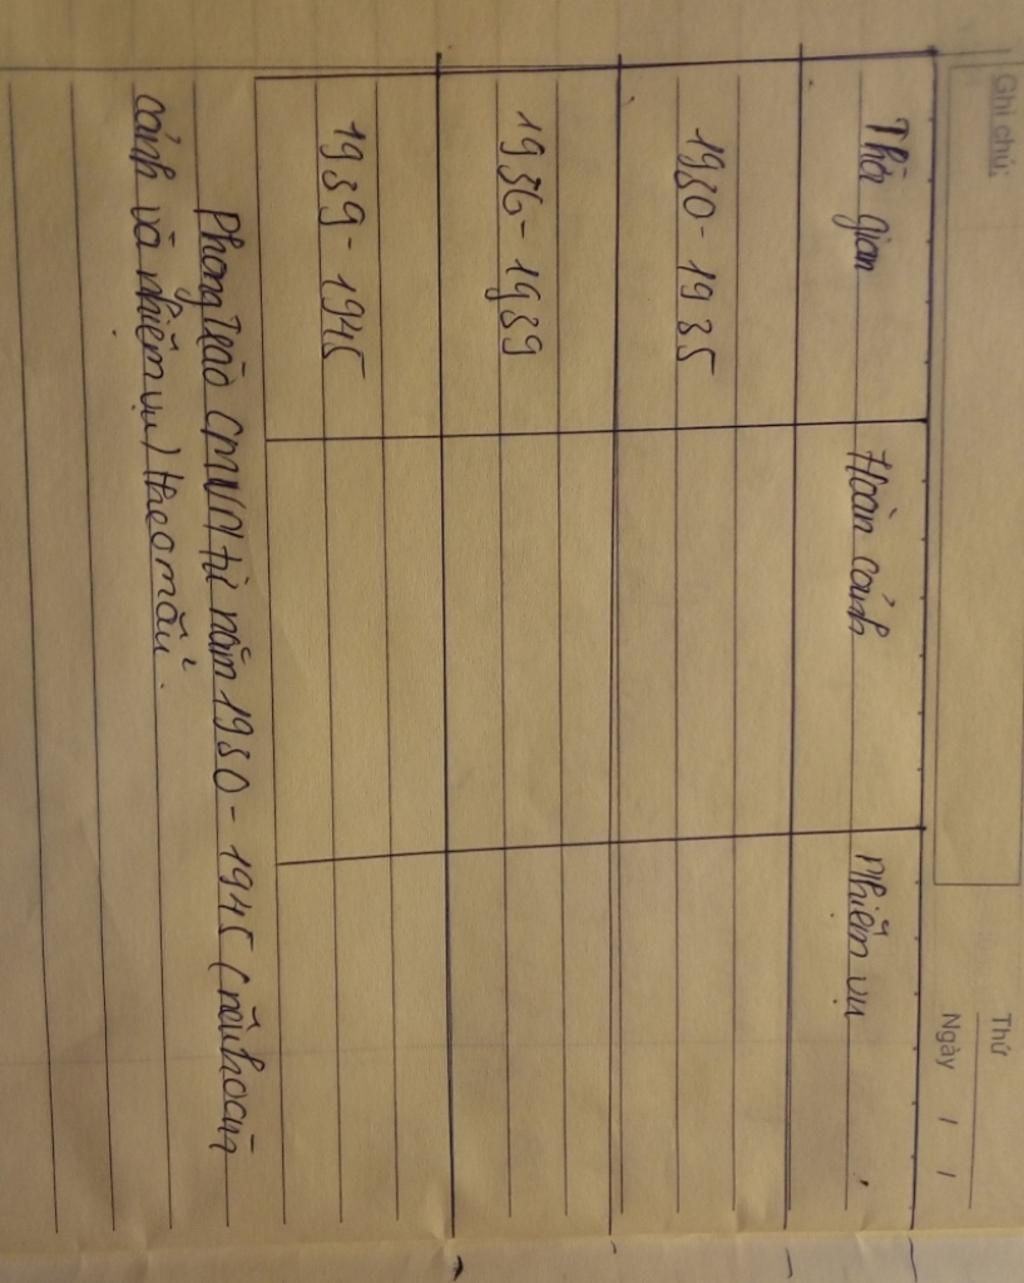 Ghi chú:
Thứ
Ngày / /
Thời gian Hoàn cảnh Nhiệm vụ
1930 - 1935
1936 - 1939
1939 - 1945
Phong trào CMVN từ năm 1930 - 1945 (nêu hoàn
cảnh và nhiệm vụ) theo mẫu.